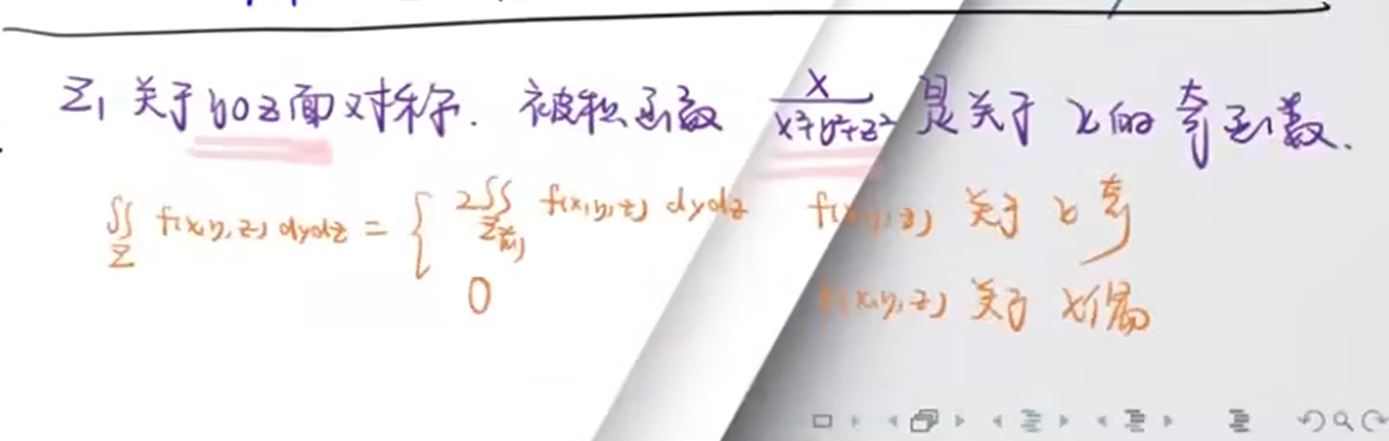 Σ₁ 关于 yoz 面对称. 被积函数 x/(x²+y²+z²) 是关于 x 的奇函数.
∬_Σ f(x,y,z) dydz = { 2∬_Σ前 f(x,y,z) dydz f(x,y,z) 关于 x 奇
0 f(x,y,z) 关于 x 偶